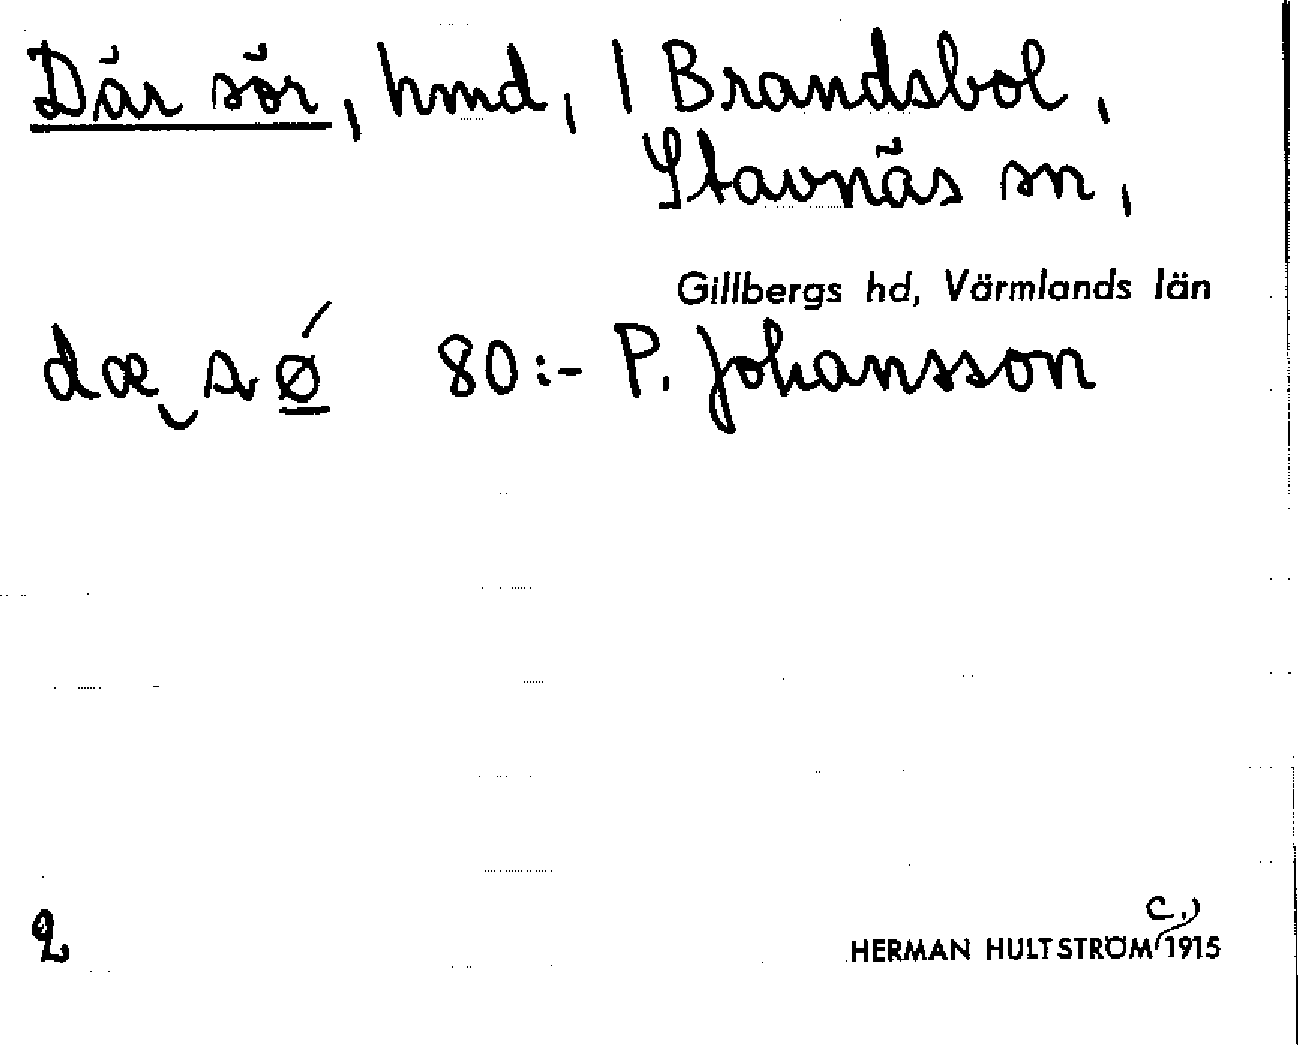 Där sör, hmd, 1 Brandsbol,
Stavnäs sn,
Gillbergs hd, Värmlands län
dæ‿sǿ 80:- P. Johansson
2
HERMAN HULTSTRÖM (c.) 1915